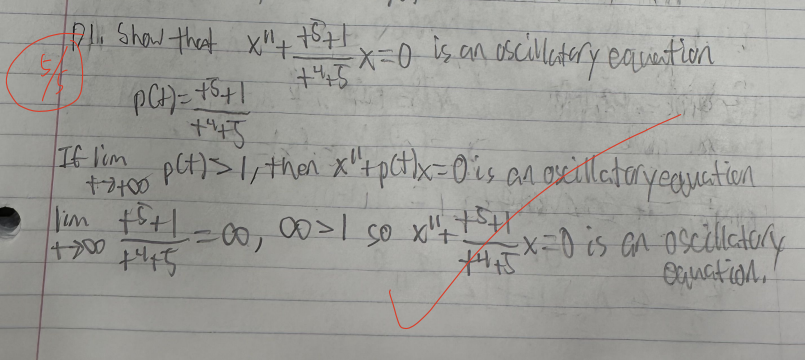 5/5
P1. Show that x'' + (t⁵+1)/(t⁴+5) x=0 is an oscillatory equation
p(t)= (t⁵+1)/(t⁴+5)
If lim t→+∞ p(t)>1, then x''+p(t)x=0 is an oscillatory equation
lim t→∞ (t⁵+1)/(t⁴+5) = ∞, ∞>1 so x''+ (t⁵+1)/(t⁴+5) x=0 is an oscillatory
equation.